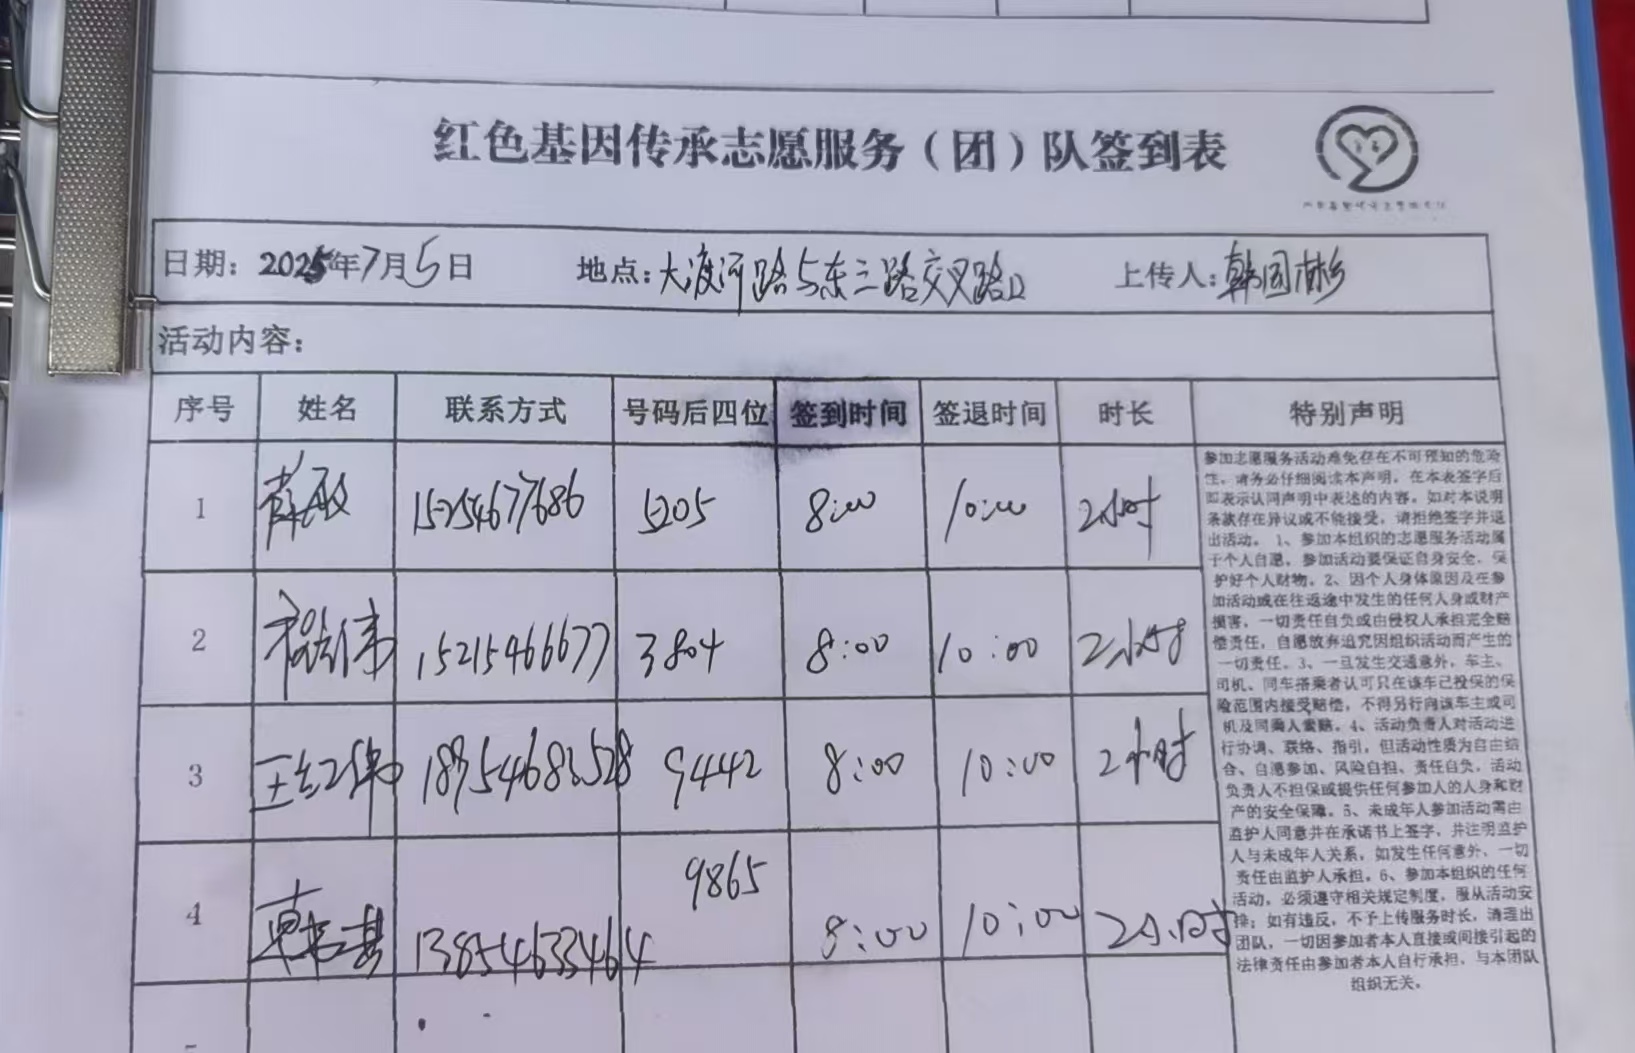 红色基因传承志愿服务（团）队签到表
日期：2025年7月5日 地点：大渡河路与东三路交叉路口 上传人：韩国彬
活动内容：
序号 姓名 联系方式 号码后四位 签到时间 签退时间 时长 特别声明
1 薛敏 15254677686 5205 8:00 10:00 2小时
2 程伟 15215466677 3804 8:00 10:00 2小时
3 王红伟 18954682528 9442 8:00 10:00 2小时
4 13854633464 9865 8:00 10:00 2小时
参加志愿服务活动难免存在不可预知的危险
性，请务必仔细阅读本声明，在本表签字后
即表示认同声明中表述的内容。如对本说明
条款存在异议或不能接受，请拒绝签字并退
出活动。1、参加本组织的志愿服务活动属
于个人自愿，参加活动要保证自身安全，保
护好个人财物。2、因个人身体原因及在参
加活动或在往返途中发生的任何人身或财产
损害，一切责任自负或由侵权人承担完全赔
偿责任，自愿放弃追究因组织活动而产生的
一切责任。3、一旦发生交通意外，车主、
司机、同车搭乘者认可只在该车已投保的保
险范围内接受赔偿，不得另行向该车主或司
机及同乘人索赔。4、活动负责人对活动进
行协调、联络、指引，但活动性质为自由结
合、自愿参加、风险自担、责任自负，活动
负责人不担保或提供任何参加人的人身和财
产的安全保障。5、未成年人参加活动需由
监护人同意并在承诺书上签字，并注明监护
人与未成年人关系，如发生任何意外，一切
责任由监护人承担。6、参加本组织的任何
活动，必须遵守相关规定制度，服从活动安
排；如有违反，不予上传服务时长，清理出
团队，一切因参加者本人直接或间接引起的
法律责任由参加者本人自行承担，与本团队
组织无关。